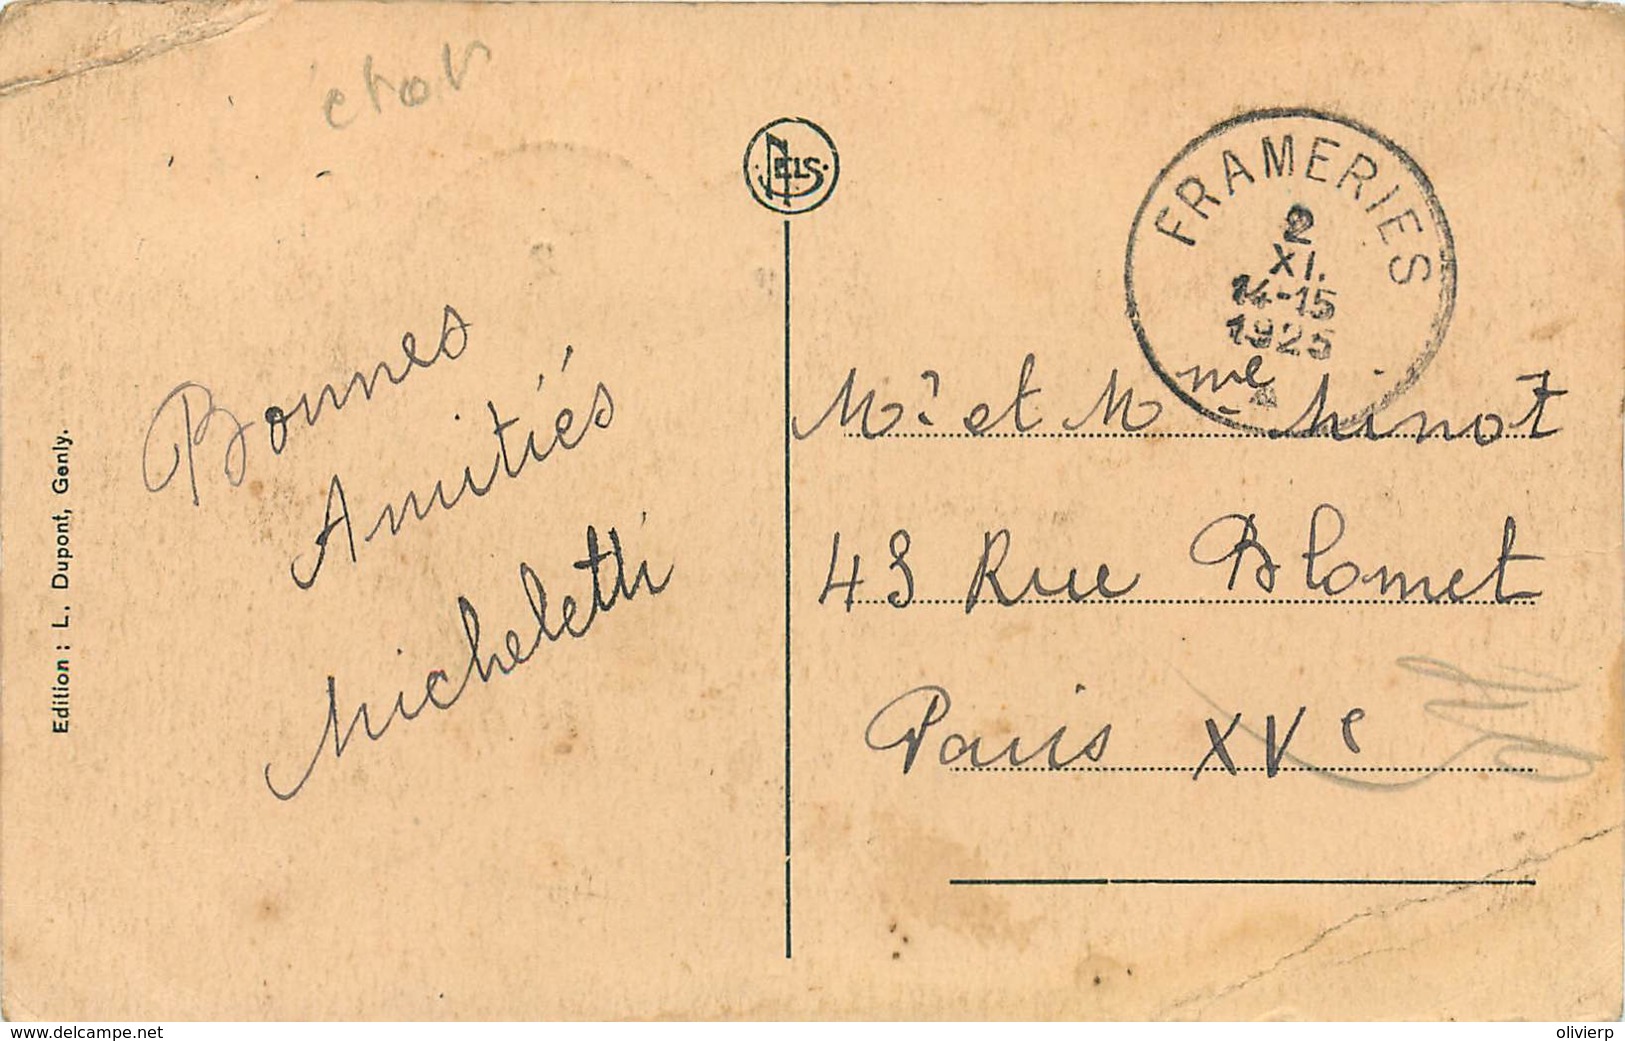 état
NELS
FRAMERIES
2
XI.
14-15
1925
Bonnes
Amitiés
Micheletti
Mr et Mme Minot
43 Rue Blomet
Paris XVe
Edition : L. Dupont, Genly.
www.delcampe.net
olivierp